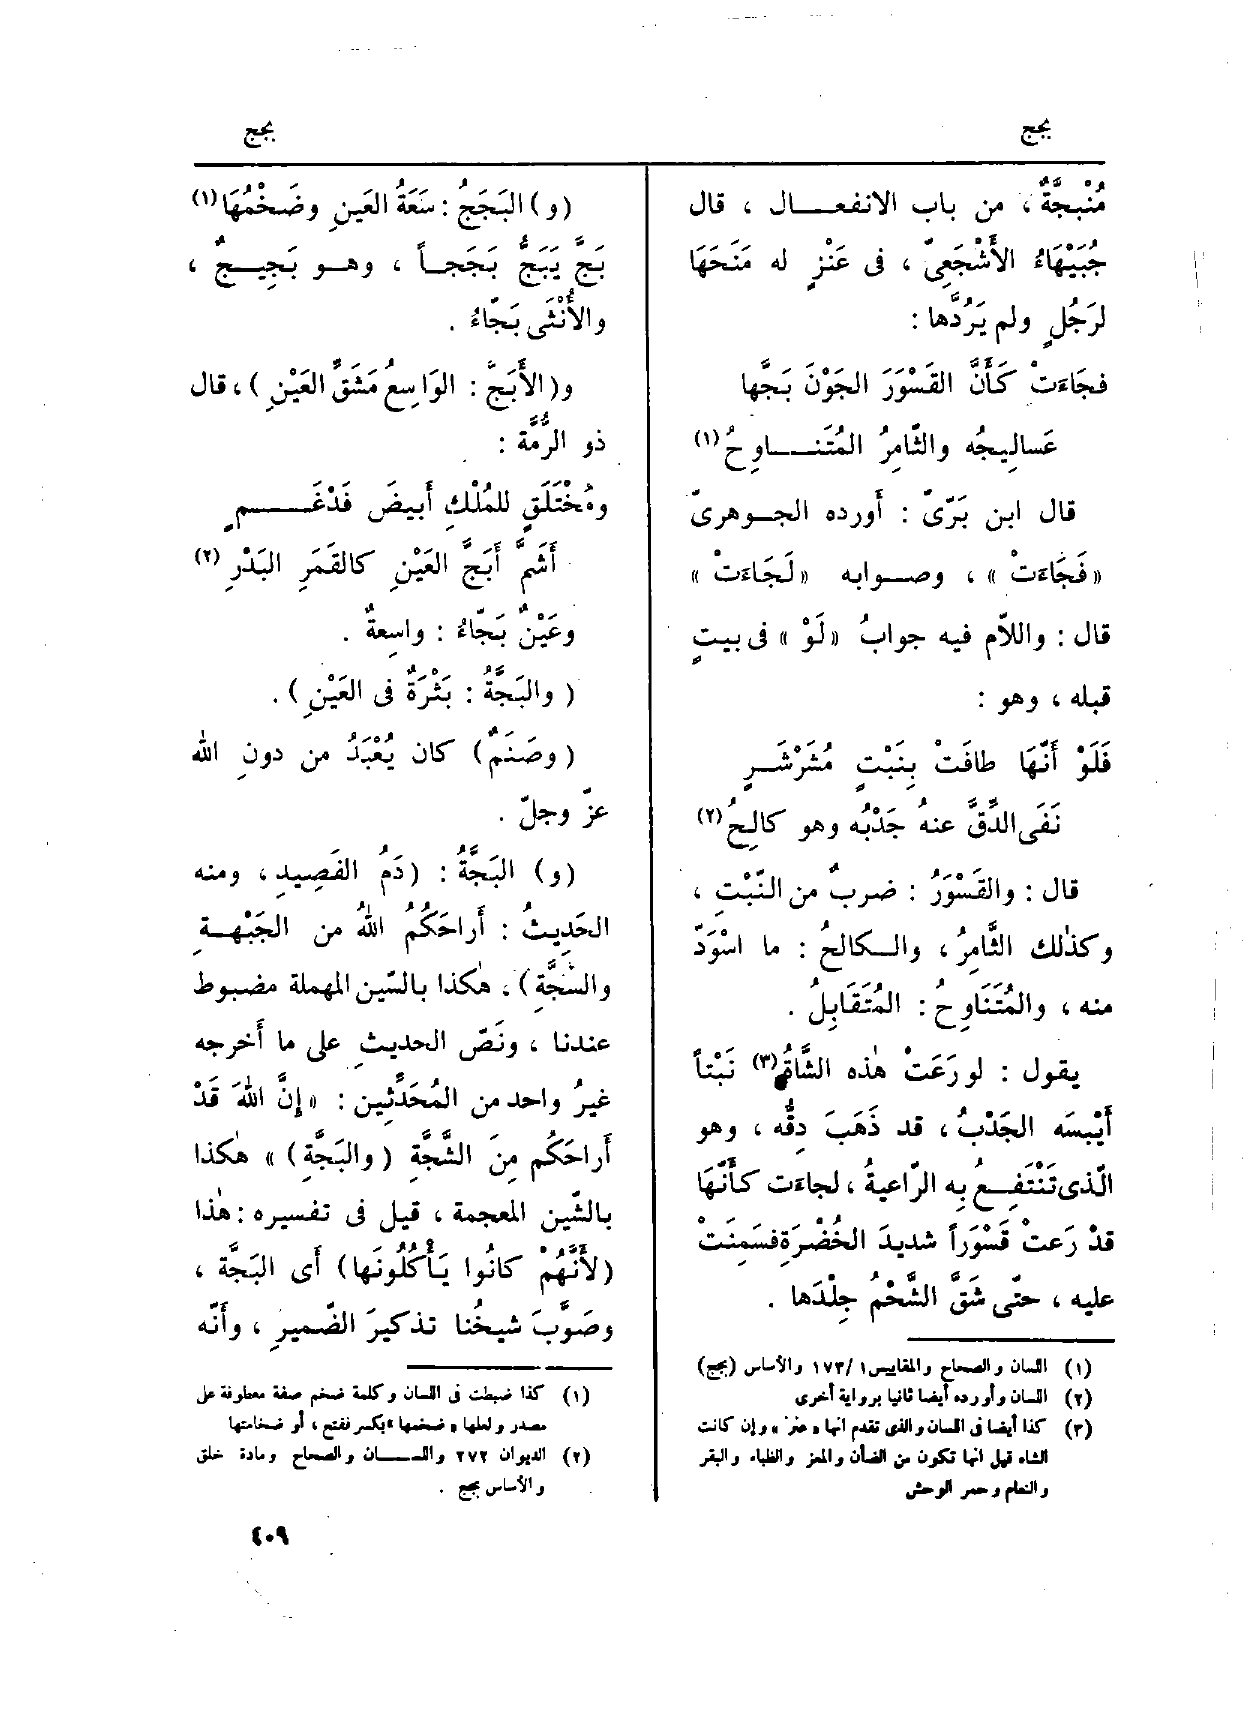 بجج
بجج
مُنْبجَّةٌ ، من باب الانفعـــال ، قال
جُبَيْهَاءُ الأَشْجَعِىّ ، فى عَنْزٍ له مَنَحَهَا
لرَجُلٍ ولم يَرُدَّها :
فجَاءَتْ كَأَنَّ القَسْوَرَ الجَوْنَ بَجَّها
عَسالِيجُه والثَّامِرُ المُتَنـــاوِحُ (١)
قال ابن بَرّىّ : أورده الجـوهرىّ
« فَجَاءَتْ » ، وصـوابه «لَجَاءَتْ »
قال : واللاّم فيه جوابُ «لَوْ » فى بيتٍ
قبله ، وهو :
فَلَوْ أَنَّهَا طافَتْ بِنَبْتٍ مُشَرْشَـرٍ
نَفَى الدِّقَّ عنهُ جَدْبُه وهو كالِحُ (٢)
قال : والقَسْوَرُ : ضربٌ من النَّبْتِ ،
وكذٰلك الثَّامِرُ ، والـكالحُ : ما اسْوَدَّ
منه ، والمُتَنَاوِحُ : المُتَقَابِلُ .
يقول : لو رَعَتْ هٰذه الشَّاةُ (٣) نَبْتاً
أَيْبسَه الجَدْبُ ، قد ذَهَبَ دِقُّه ، وهو
الّذى تَنْتَفِـعُ به الرّاعيةُ ، لجاءَت كأَنَّهَا
قدْ رَعتْ قَسْوَراً شديدَ الخُضْرَةِ فسَمِنَتْ
عليه ، حتّى شَقَّ الشَّحْمُ جِلْدَها .
(١) اللسان والصحاح والمقاييس ١ /١٧٣ والأساس (بجج)
(٢) اللسان وأورده أيضا ثانيا برواية أخرى
(٣) كذا أيضا فى اللسان والذى تقدم أنها « عنز » وإن كانت
الشاه قيل انها تكون من الضأن والمعز والظباء والبقر
والنعام وحمر الوحش
(و) البَجَجُ : سَعَةُ العَينِ وضَخْمُهَا (١)
بَجَّ يَبَجُّ بَجَجـاً ، وهـو بَجِيـجٌ ،
والأُنْثَى بَجّاءُ .
و(الأَبَجُّ : الوَاسِعُ مَشَقِّ العَيْنِ ) ، قال
ذو الرُّمَّة :
ومُخْتَلَقٍ للمُلْكِ أَبيضَ فَدْغَــــمٍ
أَشَمَّ أَبَجِّ العَيْنِ كالقَمَرِ البَدْرِ (٢)
وعَيْنٌ بَجّاءُ : واسِعةٌ .
( والبَجَّةُ : بَثْرَةٌ فى العَيْنِ ) .
( وصَنَمٌ ) كان يُعْبَدُ من دونِ الله
عزّ وجلّ .
(و) البَجَّةُ : (دَمُ الفَصِيدِ ، ومنه
الحَدِيثُ : أَراحَكُمُ اللهُ من الجَبْهـةِ
والسَّجَّةِ) ، هٰكذا بالسّين المهملة مضبوط
عندنا ، ونَصّ الحديثِ على ما أَخرجه
غيرُ واحد من المُحَدِّثِين : « إِنَّ اللهَ قَدْ
أَراحَكُم مِنَ الشَّجَّةِ ( والبَجَّةِ ) » هٰكذا
بالشّين المعجمة ، قيل فى تفسيره : هٰذا
(لأَنَّهُمْ كانُوا يَأْكُلُونَها) أَى البَجَّة ،
وصَوَّبَ شيخُنا تذكيرَ الضّميرِ ، وأَنّه
(١) كذا ضبطت فى اللسان وكلمة ضخم صفة معطوفة على
مصدر ولعلها « ضخمها » بكسر ففتح ، أو ضخامتها
(٢) الديوان ٢٧٢ واللـــسان والصحاح ومادة خلق
والأساس بجج .
٤٠٩